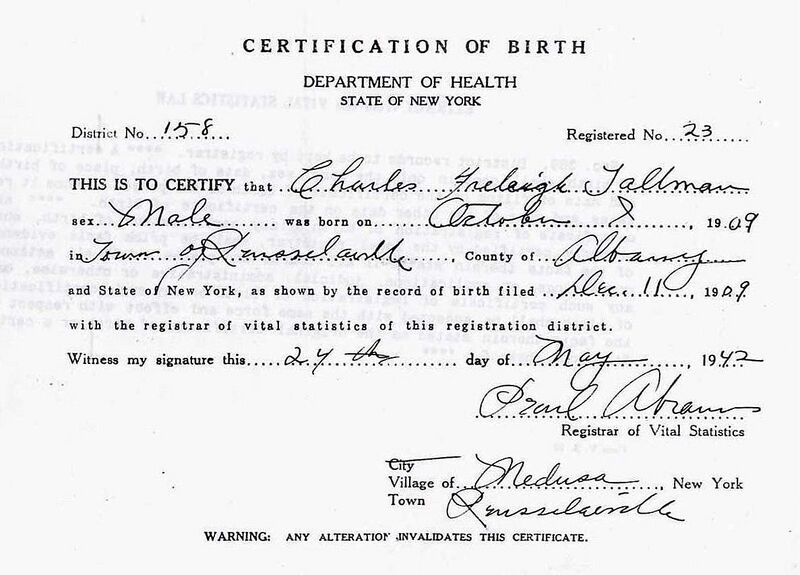 CERTIFICATION OF BIRTH
DEPARTMENT OF HEALTH
STATE OF NEW YORK
District No. 158 Registered No. 23
THIS IS TO CERTIFY that Charles Freleigh Tallman
sex Male was born on October 8, 1909
in Town of Rensselaerville, County of Albany
and State of New York, as shown by the record of birth filed Dec. 11 1909
with the registrar of vital statistics of this registration district.
Witness my signature this 24 th day of May, 1942
Abrams
Registrar of Vital Statistics
City
Village of Medusa, New York
Town Rensselaerville
WARNING: ANY ALTERATION INVALIDATES THIS CERTIFICATE.